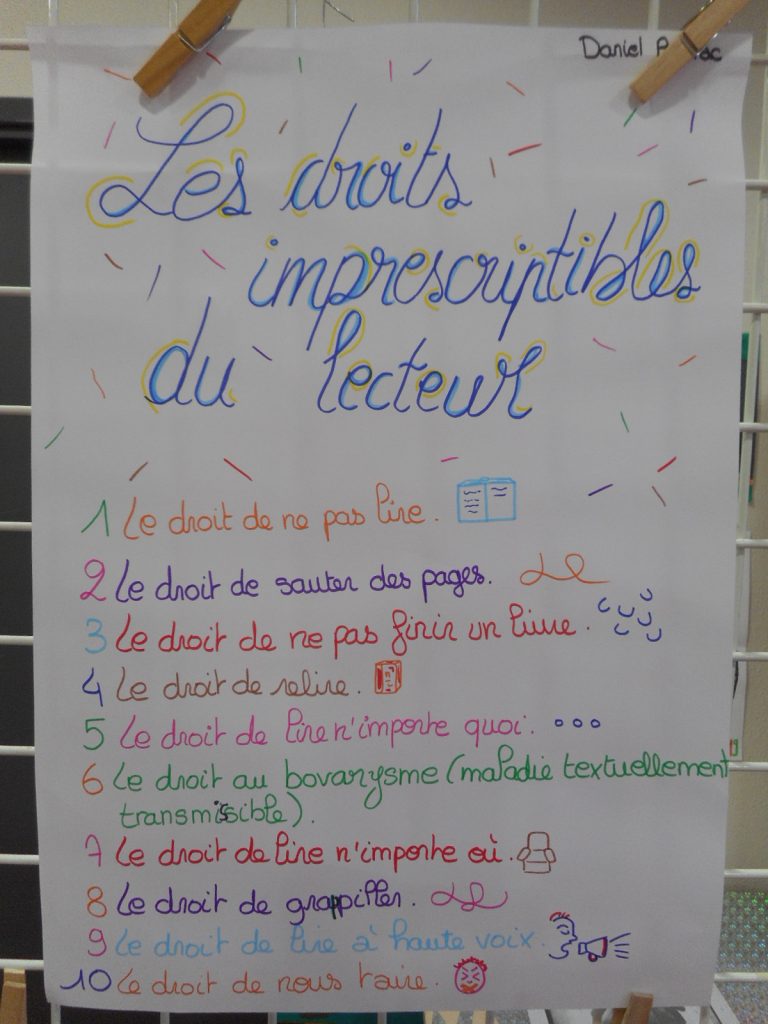 Daniel
Les droits
imprescriptibles
du lecteur
1 Le droit de ne pas lire.
2 Le droit de sauter des pages.
3 Le droit de ne pas finir un livre.
4 Le droit de relire.
5 Le droit de lire n'importe quoi.
6 Le droit au bovarysme (maladie textuellement
transmissible).
7 Le droit de lire n'importe où.
8 Le droit de grappiller.
9 Le droit de lire à haute voix.
10 Le droit de nous taire.